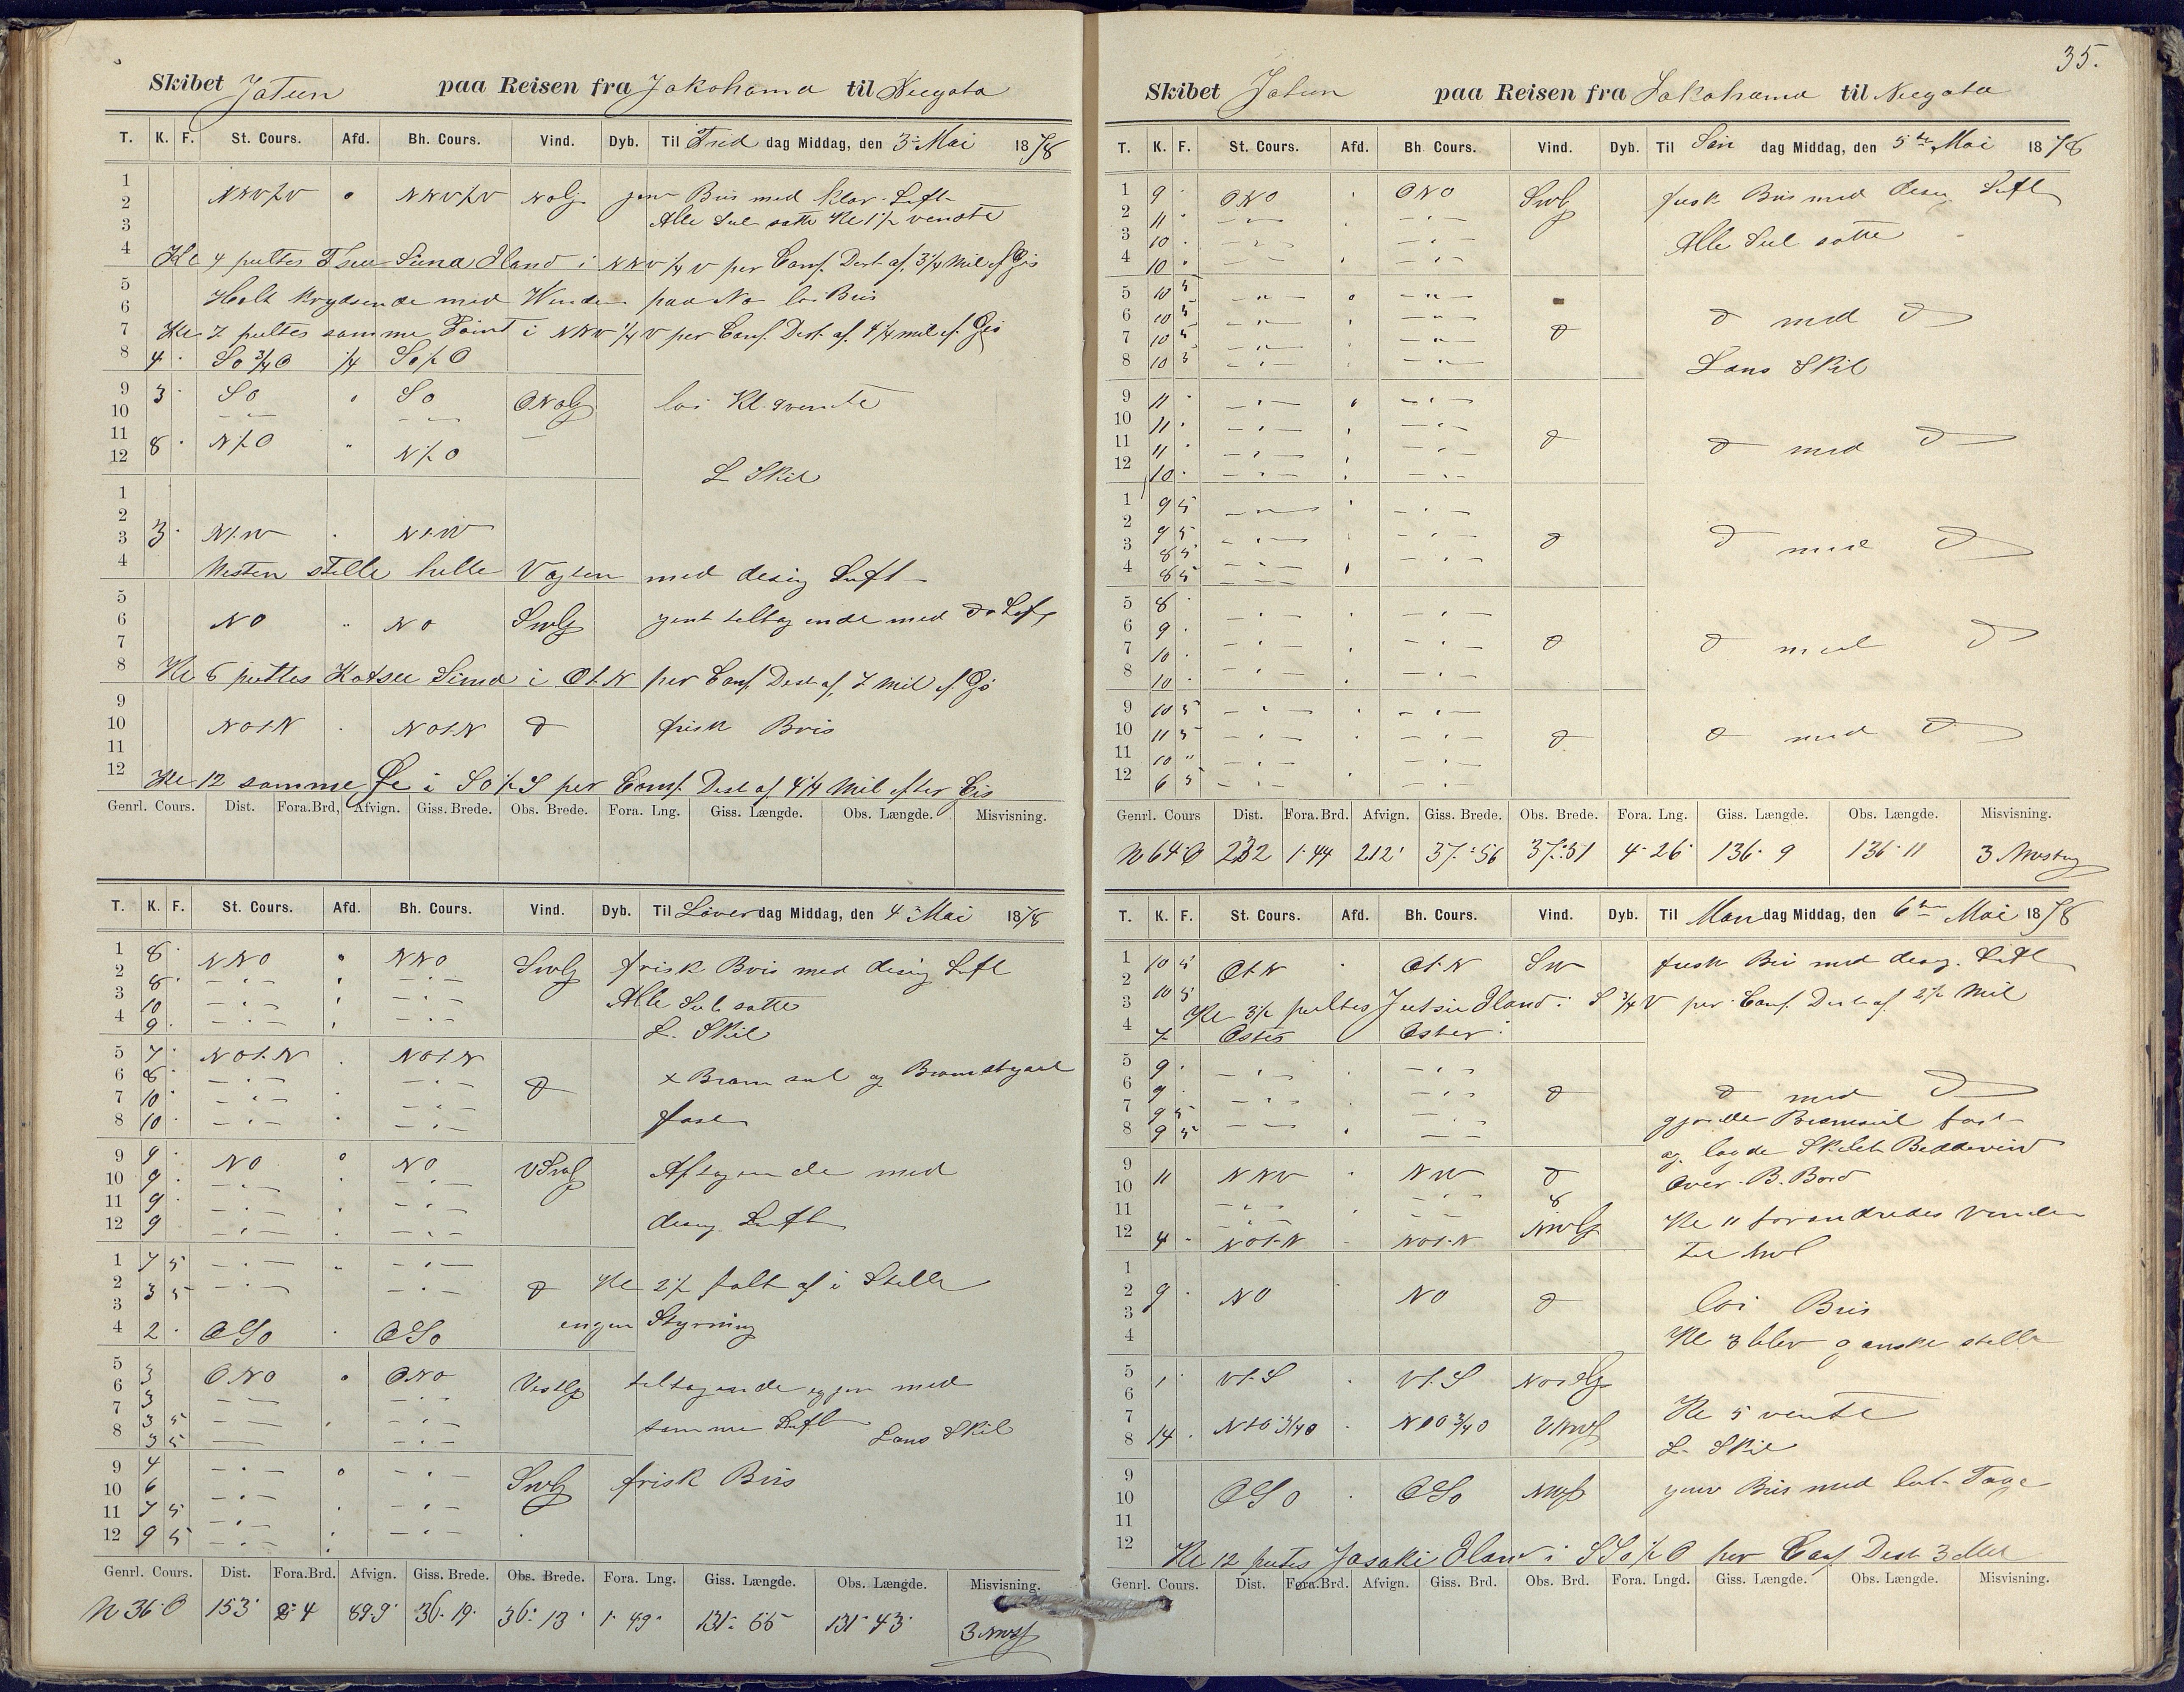 Skibet Jatun paa Reisen fra Jokohama til Neegata
T. K. F. St. Cours. Afd. Bh. Cours. Vind. Dyb. Til Freddag Middag, den 3 Mai 1878
1
2 NNV½V " NNV½V Nolg jevn Bris med klar Luft
3 Alle Seil satte Kl 1½ vendte
4 Kl 4 peiltes Tsu Sima Iland i NNV¼V per Comp. Dist af 3¼ Mil ef. Gis
5
6 Holt krydsende med Vinden paa No loi Bris
7 Kl 7 peiltes samme Point i NNV¼V per Comp. Dist. af. 4¼ mil ef. Gis
8 4 · So¾O ¼ So½O
9 3 · So " So ONolg loi Kl. 9 vendte
10 — " — — " —
11
12 8 · N½O " N½O
L Skil
1
2
3 3 · NtW · NtW
4 Nesten stille hele Vagten med desig Luft
5
6 NO " NO Swlg jent teltagende med do Luft
7
8 Kl 6 peiltes Kotsu Sima i OtN per Comp. Dist af, 7 Mil ef. Gis
9
10 NOtN · NOtN do frisk Bris
11
12 Kl 12 samme Øe i So½S per Comp. Dist af 4¼ Mil efter Gis
Genrl. Cours. Dist. Fora.Brd, Afvign. Giss. Brede. Obs. Brede. Fora. Lng. Giss. Længde. Obs. Længde. Misvisning.
T. K. F. St. Cours. Afd. Bh. Cours. Vind. Dyb. Til Löverdag Middag, den 4 Mai 1878
1 8 · NNO " NNO Swlg frisk Bris med desig Luft
2 8 · — " — " — " — Alle Seil satte
3 10 — " — " — " —
4 9 · — " — " — " — L. Skil
5 7 · NOtN · NOtN
6 8 · — " — · — " — do x Bramseil og Bramstagseil
7 10 · — " — · — " —
8 10 · — " — · — " — fast
9 9 · NO " NO VSwlg Aftagende med
10 9 · — " — · — " —
11 9 · — " — · — " — desig Luft
12 9 — " — · — " —
1 7 5 — " — " — " —
2 3 5 — " — — " — do Kl 2½ falt af i Stille
3 engen Styrning
4 2 · OSo · OSo
5 3 ONO " ONO Vestlg teltagende og jen med
6 3 — — — " —
7 3 5 — — · — " — samme Luft
8 3 5 — — — " — Lans Skil
9 4 — " — " — " — Swlg frisk Bris
10 6 — " —
11 7 5 — " — · — " —
12 9 5 — " — · — " —
Genrl. Cours. Dist. Fora.Brd. Afvign. Giss. Brede. Obs. Brede. Fora. Lng. Giss. Længde. Obs. Længde. Misvisning.
N 36° O 153· 2° 4 89.9· 36· 19· 36° 13· 1· 49· 131° 55 131° 43· 3 Nvestl
35.
Skibet Jatun paa Reisen fra Jokohama til Neegata
T. K. F. St. Cours. Afd. Bh. Cours. Vind. Dyb. Til Sön dag Middag, den 5te Mai 1878
1 9 · ONO " ONO Swlg frisk Bris med desig. Luft
2 11 · — " — — " —
3 10 · — " — · — " — Alle Seil satte
4 10 · — " — · — " —
5 10 5 — " — " — " —
6 10 5 — " — — " — do med do
7 10 5 — " — — " — do
8 10 5 — " — · — " — Lans Skil
9 11 · — " — " — " —
10 11 · — " — · — " —
11 11 · — " — · — " — do do med do
12 10 · — " — · — " —
1 9 5 — " — · — " —
2 9 5 — " — · — " — do do med do
3 8 5 — " — · — " —
4 8 5 — " — · — " —
5 8 · — " — · — " —
6 9 · — " — · — " — do do med do
7 10 · — " — · — " —
8 10 · — " — · — " —
9 10 5 — " — · — " —
10 11 5 — " — · — " — do do med do
11 10 " — " — · — " —
12 6 5 — " — · — " —
Genrl. Cours Dist. Fora.Brd. Afvign. Giss. Brede. Obs. Brede. Fora. Lng. Giss. Længde. Obs. Længde. Misvisning.
N 64° O 232 1· 44 212· 37° 56 37° 51 4· 26· 136· 9 136· 11 3 Nvestlg
T. K. F. St. Cours. Afd. Bh. Cours. Vind. Dyb. Til Mandag Middag, den 6te Mai 1878
1 10 5 OtN · OtN Sw frisk Bri med desig. Luft
2 10 5
3 Kl 3½ peiltes Jutsin Iland i S¾V per Comp. Dist af 2½ Mil
4 7 Oster Oster
5 9 · — " — · — " —
6 9 · — " — · — " — do do med do
7 9 5 — " — · — " — gjorde Bramseil fast
8 9 5 — " — · — " — og lagde Skibet Beddevind
9 11 NNV · NW do Over B. Bord
10 — " — — " —
11 — " — — " — NWlg Kl 11 forandredes Vinden
12 4 · NOtN · NOtN Til Nvl
1
2 9 · NO · NO do loi Bris
3
4 Kl 3 blev ganske stille
5
6 1 · VtS · VtS Nordlg
7 Kl 5 vente
8 14 · NtO¾O · NtO¾O VNWl L. Skil
9
10 OSO · OSo NWl jevn Bris med let Taage
11
12 Kl 12 peiltes Jasaki Iland i SSo½O per Comp Dist 3 Mil
Genrl. Cours. Dist. Fora.Brd. Afvign. Giss. Brd. Obs. Brd. Fora. Lngd. Giss. Længde. Obs. Længde. Misvisning.